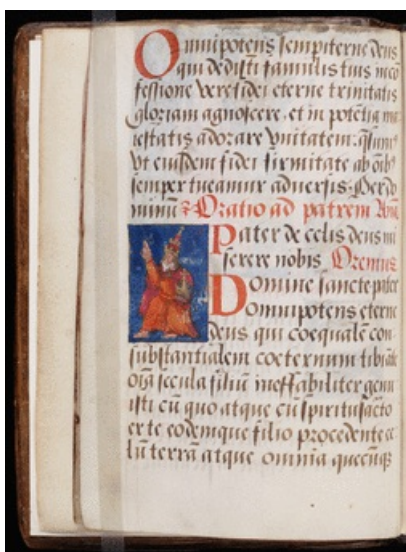 Omnipotens sempiterne deus
qui dedisti famulis tuis in cō
fessione vere fidei eterne trinitatis
gloriam agnoscere, et in potētia ma
iestatis adorare vnitatem: qsumꝰ
vt eiusdem fidei firmitate ab oībꝰ
semper tueamur aduersis. Per do
minū Oratio ad patrem Añ.
Pater de celis deus mi
serere nobis Oremus
Domine sancte pater
omnipotens eterne
deus qui coequalem con
substantialem coeternum tibi ante
oīa secula filiū ineffabiliter genu
isti cū quo atque cū spiritusācto
ex te eodemque filio procedente ce
lū terrā atque omnia quecūqꝫ